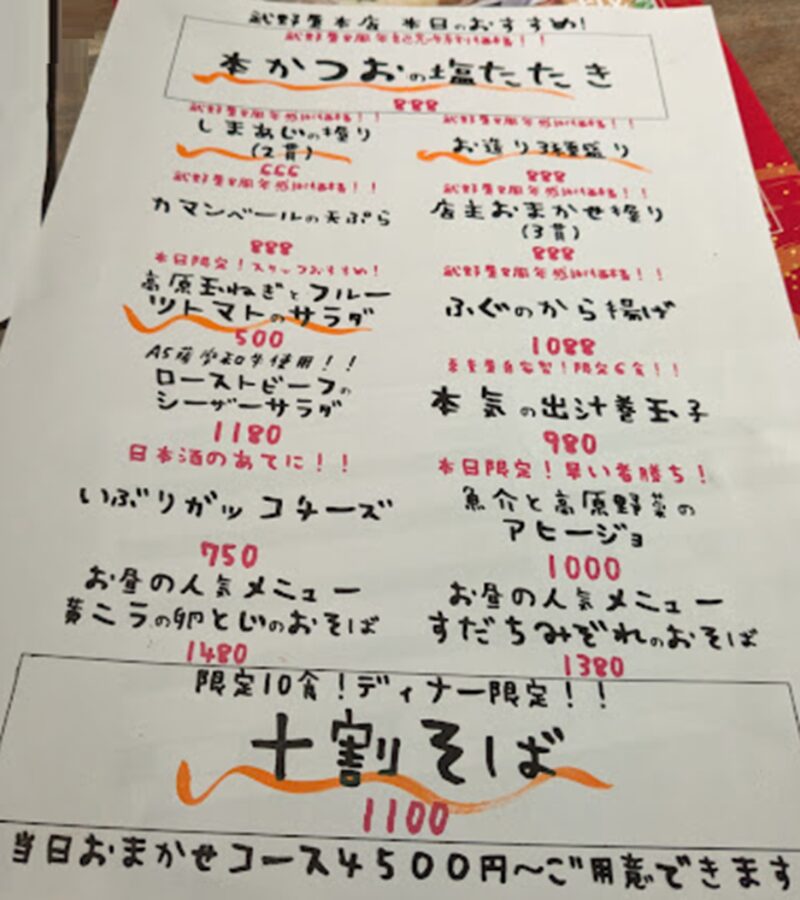 武野屋本店 本日のおすすめ!
武野屋8周年記念特別価格!!
本かつおの塩たたき
888
武野屋8周年感謝価格!!
しまあじの握り
(2貫)
666
武野屋8周年感謝価格!!
お造り3種盛り
888
武野屋8周年感謝価格!!
カマンベールの天ぷら
888
武野屋8周年感謝価格!!
店主おまかせ握り
(3貫)
888
本日限定!スタッフおすすめ!
高原玉ねぎとフルー
ツトマトのサラダ
500
武野屋8周年感謝価格!!
ふぐのから揚げ
1088
A5薩摩和牛使用!!
ローストビーフの
シーザーサラダ
1180
自家製!限定6食!!
本気の出汁巻玉子
980
日本酒のあてに!!
いぶりガッコチーズ
750
本日限定!早い者勝ち!
魚介と高原野菜の
アヒージョ
1000
お昼の人気メニュー
黄ニラの卵とじのおそば
1480
お昼の人気メニュー
すだちみぞれのおそば
1380
限定10食!ディナー限定!!
十割そば
1100
当日おまかせコース4500円〜ご用意できます